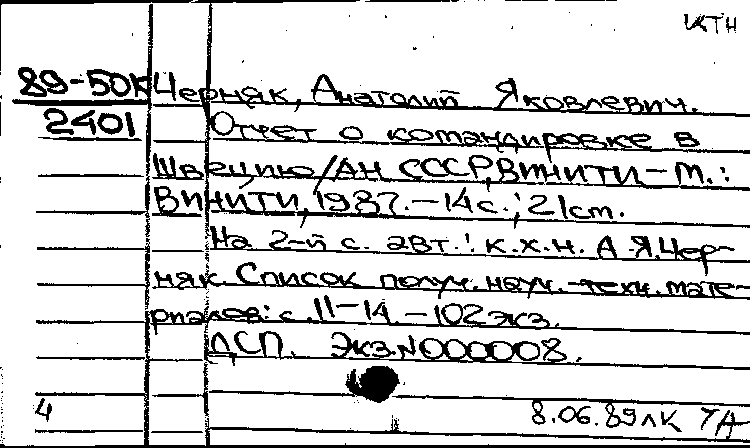 ИСТН
89-50К Черняк, Анатолий Яковлевич.
2401 Отчет о командировке в
Швецию/АН СССР, ВИНИТИ - М.:
ВИНИТИ, 1987. - 14 с.; 21 см.
На 2-й с. авт.: к.х.н. А.Я. Чер-
няк. Список получ. науч.-техн. мате-
риалов: с. 11-14. - 102 экз.
ДСП. Экз. N000008.
4 8.06.89 лк